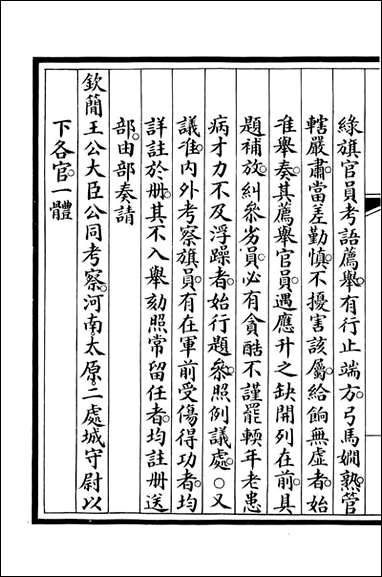 綠旗官員考語薦舉。有行止端方。弓馬嫻熟。管
轄嚴肅。當差勤慎。不擾害該屬。給餉無虛者。始
准舉奏。其薦舉官員。遇應升之缺開列在前。具
題補放。糾參劣員。必有貪酷不謹罷輭年老患
病才力不及浮躁者。始行題參。照例議處。○又
議准。內外考察旗員。有在軍前受傷得功者。均
詳註於册。其不入舉劾照常留任者。均註册送
部。由部奏請
欽簡王公大臣公同考察。河南太原二處城守尉以
下各官。一體